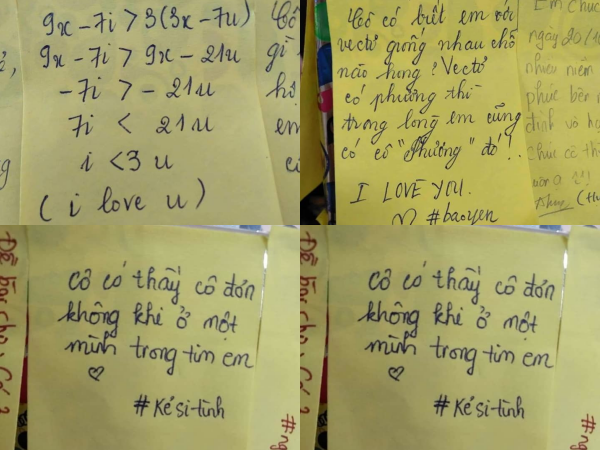 9x - 7i > 3(3x - 7u)
9x - 7i > 9x - 21u
- 7i > - 21u
7i < 21u
i <3 u
( i love u )
Cô có biết em với
vectơ giống nhau chỗ
nào hong? Vectơ
có phương thì
trong lòng em cũng
có cô "Phương" đó!
I LOVE YOU.
♡ #baoyen
Em chúc
ngày 20/10
nhiều niềm
phúc bên
đình và
chúc cô th
Cô có thấy cô đơn
không khi ở một
mình trong tim em
♡
# Kẻ si-tình
Cô có thấy cô đơn
không khi ở một
mình trong tim em
♡
# Kẻ si-tình